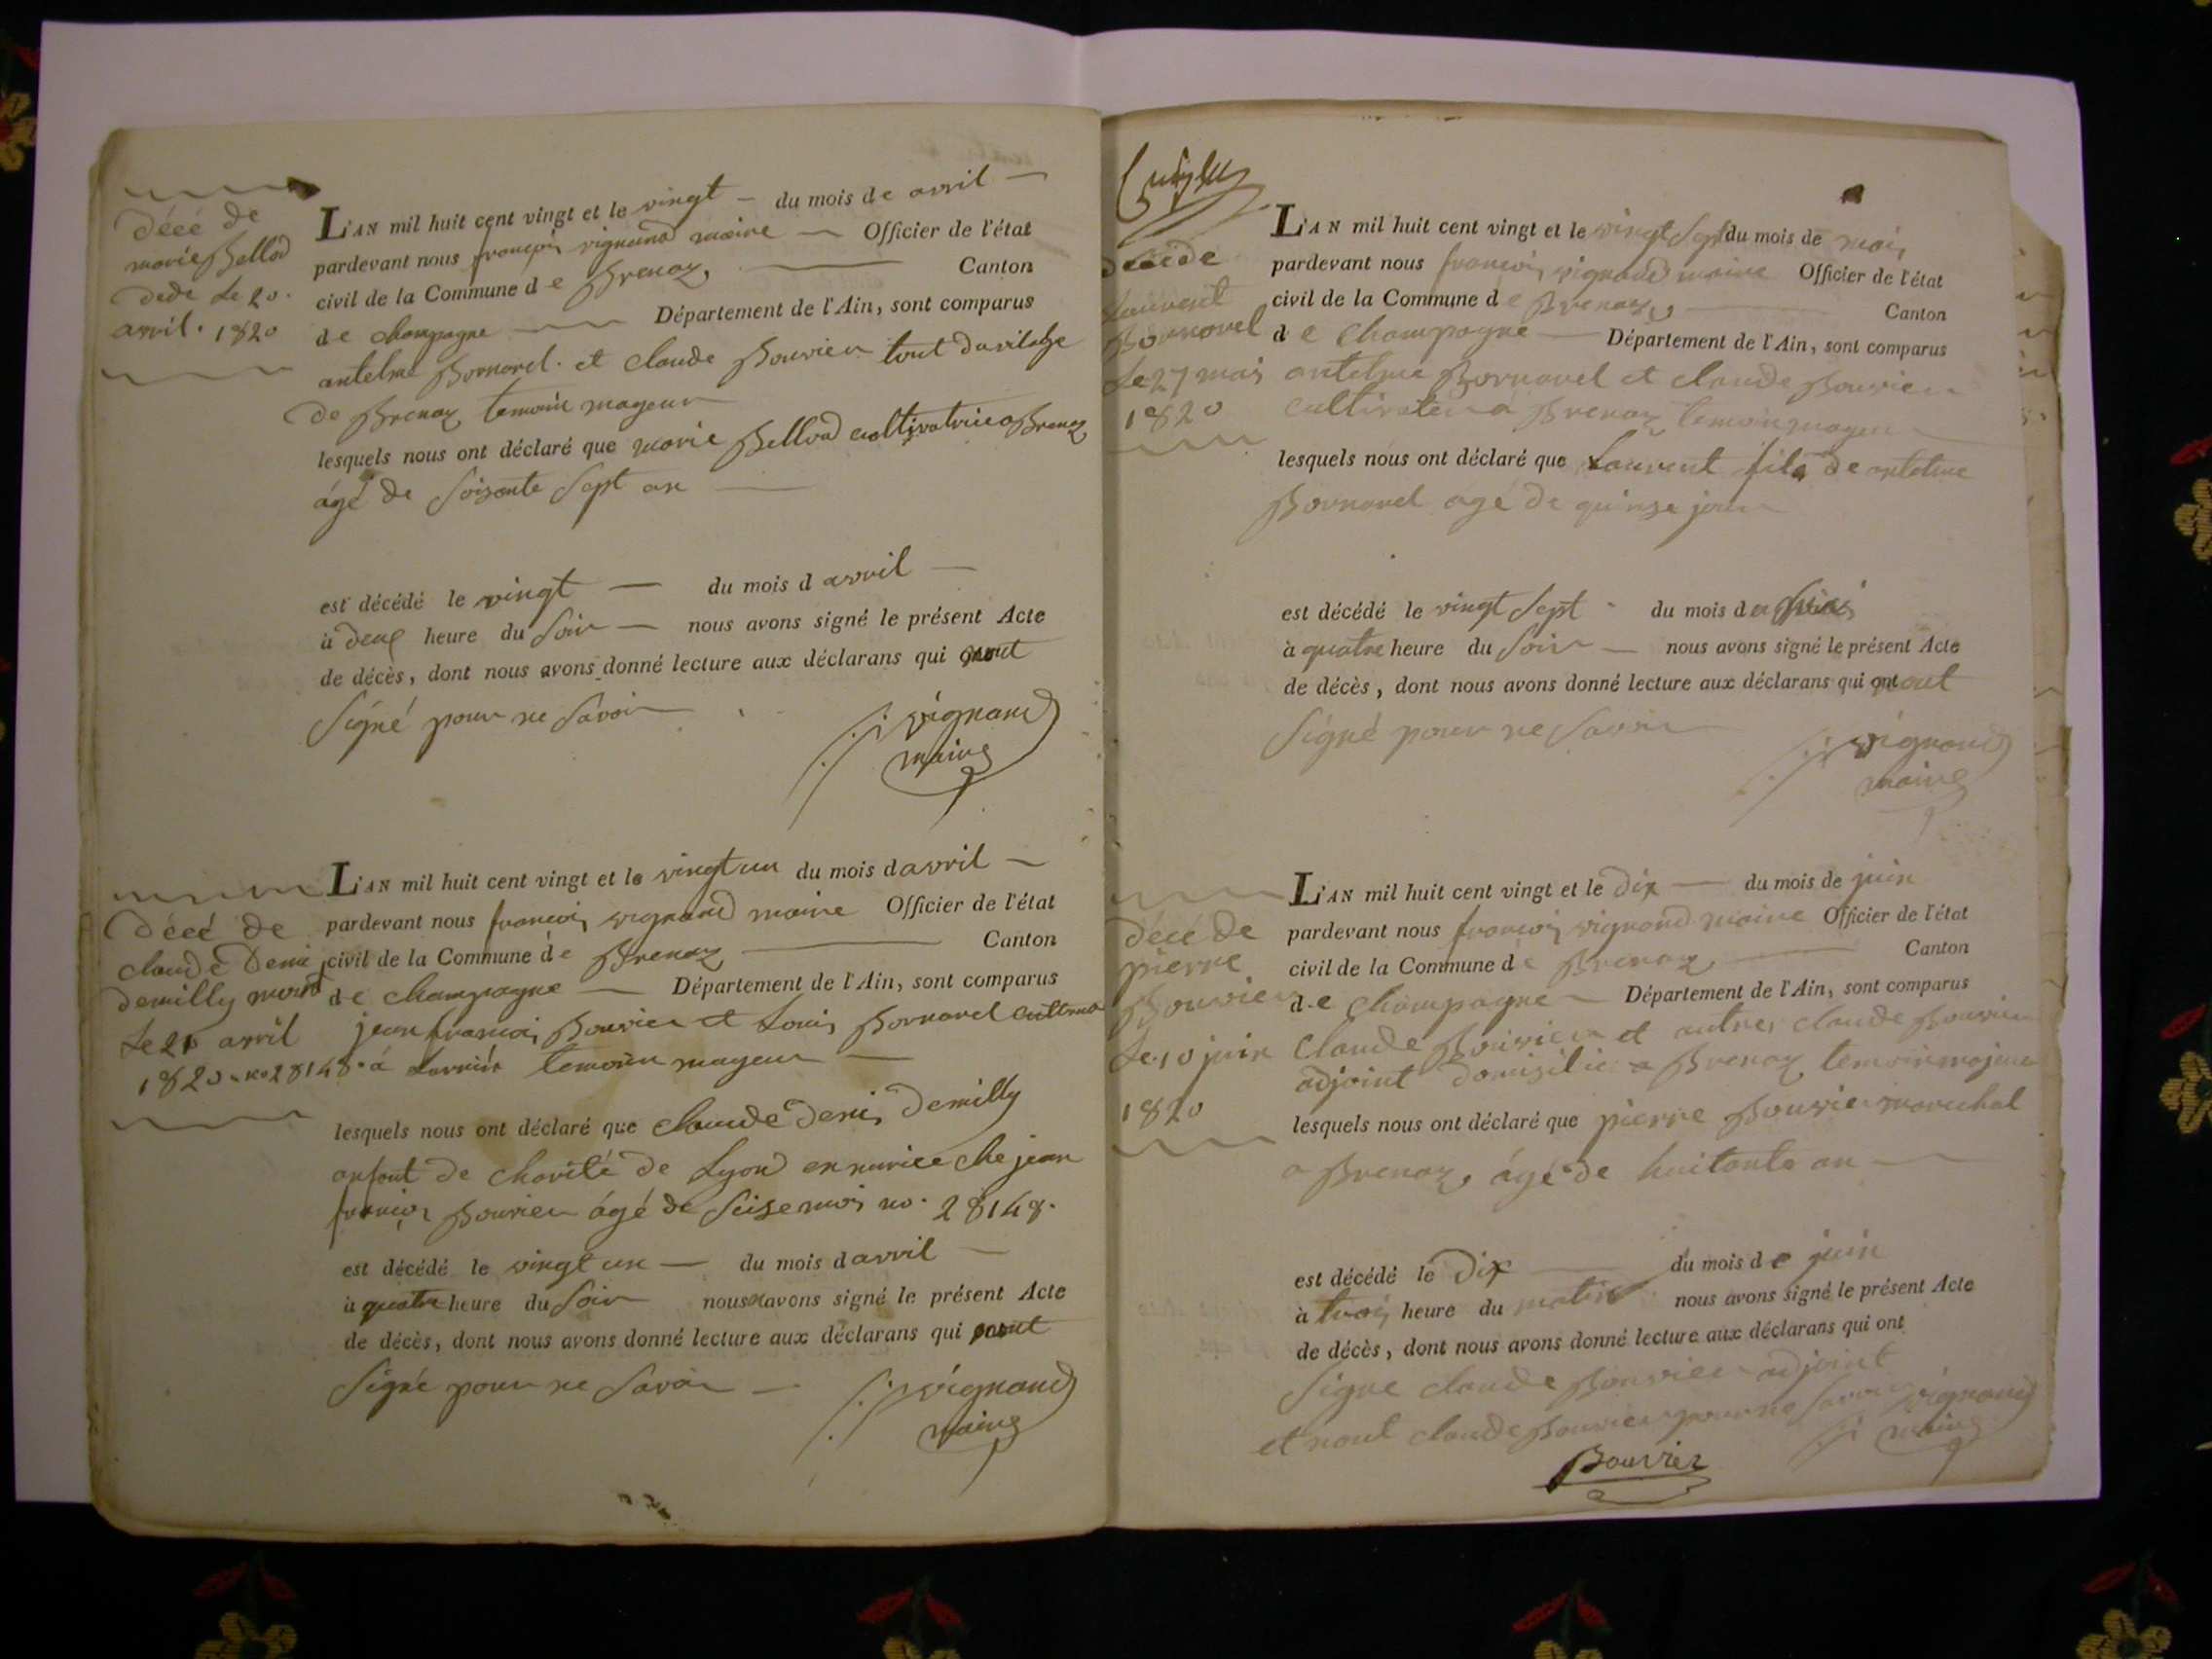 décé de
marie Bellod
dede Le 20.
avril. 1820
L'AN mil huit cent vingt et le vingt — du mois de avril —
pardevant nous françois vignand maire — Officier de l'état
civil de la Commune de Brenaz, — Canton
de Champagne — Département de l'Ain, sont comparus
antelme Bornarel. et claude Bouvier tout du vilage
de Brenaz temoin mageur
lesquels nous ont déclaré que marie Bellod cultivatrice a Brenaz
ágé de Soisante Sept an —
est décédé le vingt — du mois d avril —
à deux heure du Soir — nous avons signé le présent Acte
de décès, dont nous avons donné lecture aux déclarans qui nont
Signé pour ne Savoir
vignand
maire
décé de
claude Denis
demilly mort
Le 21 avril
1820. no 28148. á
L'AN mil huit cent vingt et le vingt un du mois d avril —
pardevant nous françois vignand maire Officier de l'état
civil de la Commune de Brenaz — Canton
de champagne — Département de l'Ain, sont comparus
jean françois Bouvier et Louis Bornarel
temoin mageur —
lesquels nous ont déclaré que Claude Denis Demilly
anfant de charité de Lyon en nurice che jean
françois Bouvier ágé de Seise mois no. 28148.
est décédé le vingt un — du mois d avril —
à quatre heure du Soir nous avons signé le présent Acte
de décès, dont nous avons donné lecture aux déclarans qui nont
Signé pour ne Savoir —
vignand
maire
Laurent
Bornarel
Le 27 mai
1820
L'AN mil huit cent vingt et le vingt Sept du mois de mai
pardevant nous françois vignand maire Officier de l'état
civil de la Commune de Brenaz, — Canton
de Champagne — Département de l'Ain, sont comparus
antelme Bornarel et claude Bouvier
cultivateur á Brenaz temoin mageur
lesquels nous ont déclaré que Laurent fils de antelme
Bornarel agé de quinse jour
est décédé le vingt Sept - du mois de mai
à quatre heure du Soir — nous avons signé le présent Acte
de décès, dont nous avons donné lecture aux déclarans qui ont nont
Signé pour ne Savoir
vignand
maire
décé de
pierre
Bouvier
Le. 10 juin
1820
L'AN mil huit cent vingt et le Dix — du mois de juin
pardevant nous françois vignand maire Officier de l'état
civil de la Commune de Brenaz — Canton
de Champagne — Département de l'Ain, sont comparus
Claude Bouvier et autre claude Bouvier
adjoint domisilié a Brenaz temoin majeur
lesquels nous ont déclaré que pierre Bouvier marechal
a Brenaz, ágé de huitante an —
est décédé le Dix — du mois de juin
à trois heure du matin nous avons signé le présent Acte
de décès, dont nous avons donné lecture aux déclarans qui ont
Signe claude Bouvier adjoint
et nont claude Bouvier pour ne Savoir vignand
maire
Bouvier